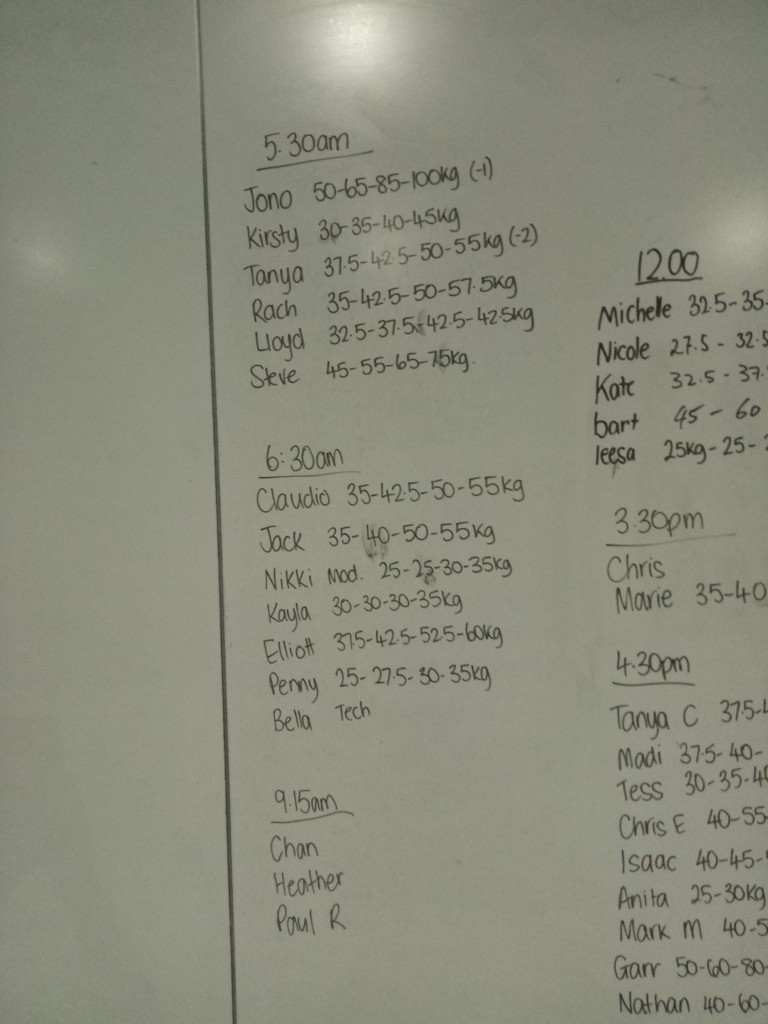 5.30am
Jono 50-65-85-100kg (-1)
Kirsty 30-35-40-45kg
Tanya 37.5-42.5-50-55kg (-2)
Rach 35-42.5-50-57.5kg
Lloyd 32.5-37.5-42.5-42.5kg
Steve 45-55-65-75kg.
6:30am
Claudio 35-42.5-50-55kg
Jack 35-40-50-55kg
Nikki Mod. 25-25-30-35kg
Kayla 30-30-30-35kg
Elliott 37.5-42.5-52.5-60kg
Penny 25-27.5-30-35kg
Bella Tech
9.15am
Chan
Heather
Paul R
12.00
Michelle 32.5-35.
Nicole 27.5 - 32.5
Kate 32.5 - 37.
bart 45 - 60
leesa 25kg-25-
3.30pm
Chris
Marie 35-40
4.30pm
Tanya C 37.5-
Madi 37.5-40-
Tess 30-35-40
Chris E 40-55-
Isaac 40-45-
Anita 25-30kg
Mark M 40-5
Garr 50-60-80-
Nathan 40-60-